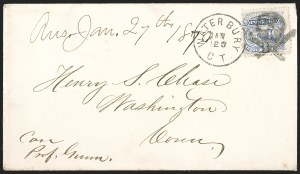 Ans. Jan. 27th, 187
WATERBURY
JAN
25
CT
Henry S. Chase
Washington
Conn.
Care
Prof. Gunn.